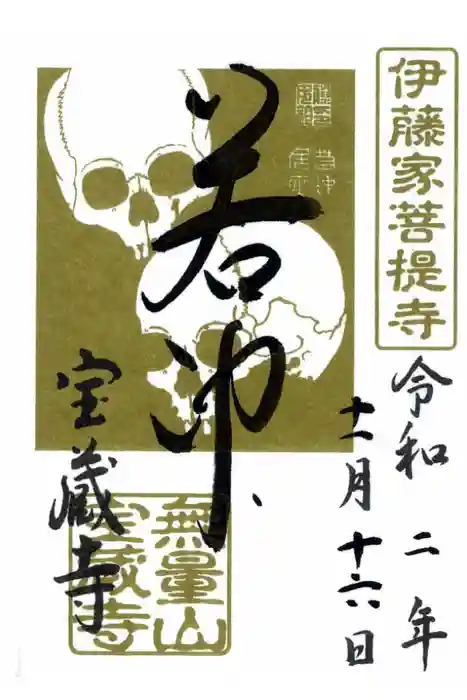 伊藤家菩提寺
令和二年
十一月十六日
若冲
宝蔵寺
無量山
宝蔵寺